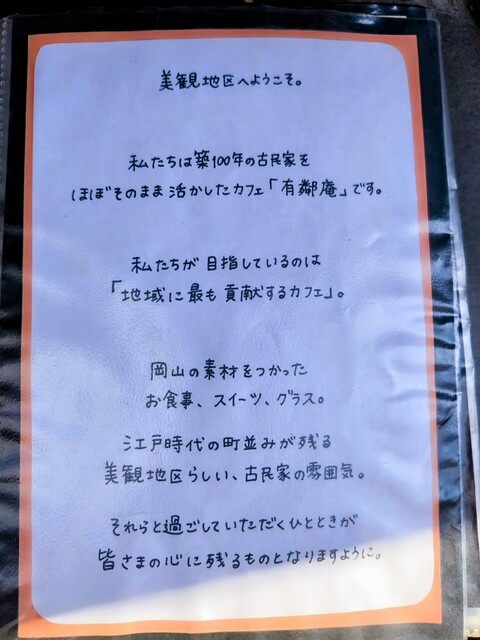 美観地区へようこそ。
私たちは築100年の古民家を
ほぼそのまま活かしたカフェ「有鄰庵」です。
私たちが目指しているのは
「地域に最も貢献するカフェ」。
岡山の素材をつかった
お食事、スイーツ、グラス。
江戸時代の町並みが残る
美観地区らしい、古民家の雰囲気。
それらと過ごしていただくひとときが
皆さまの心に残るものとなりますように。